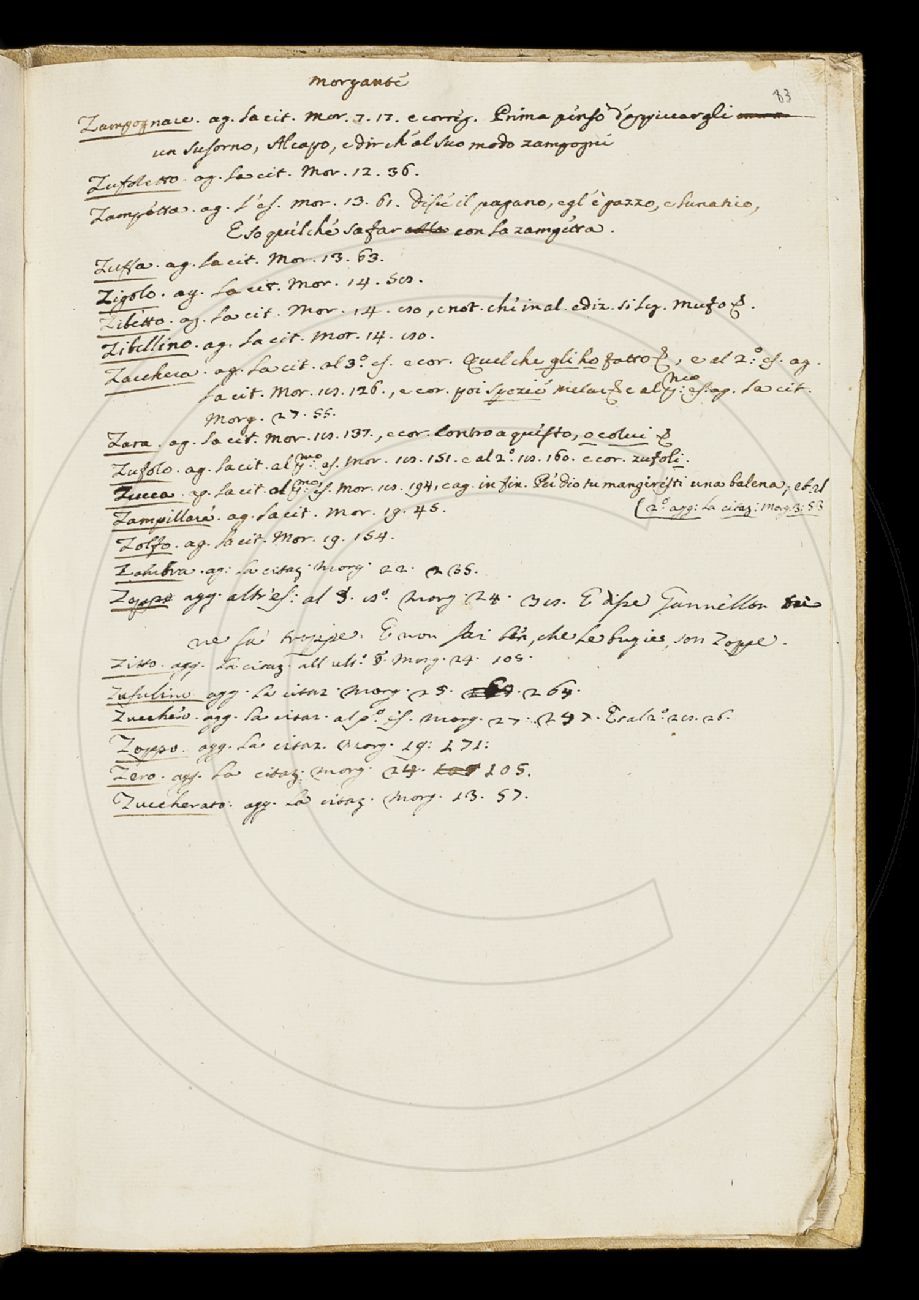 Morgante
83
Zampognare. ag. la cit. Mor. 7. 17. e corrig. Prima pensò d'appiccargli
un susorno, Al capo, e dir ch'al suo modo zampogni
Zufoletto. ag. la cit. Mor. 12. 36.
Zampetta. ag. l'es. Mor. 13. 61. Disse il pagano, egl'è pazzo, e lunatico,
E so quel che sa far colla con la zampetta.
Zuffa. ag. la cit. Mor. 13. 63.
Zigolo. ag. la cit. Mor. 14.
Zibetto. ag. la cit. Mor. 14. e not. che in al. ediz. si leg. Mufo &.
Zibellino. ag. la cit. Mor. 14.
Zacchera. ag. la cit. al 3.º es. e cor. Quel che gli ho fatto &, e al 2.º es. ag.
la cit. Mor. 126., e cor. poi spezie & e al es. ag. la cit.
Morg. 27. 55.
Zara. ag. la cit. Mor. 137., e cor. Contro a questo, o colui &
Zufolo. ag. la cit. al pmo es. Mor. 151. e al 2.º 160. e cor. zufoli.
Zucca. ag. la cit. al pmo es. Mor. 194, e ag. in fin. Pei dio tu mangeresti una balena, et al
(2.º agg: la citaz: Mog. 3: 53
Zampillare. ag. la cit. Mor. 19. 45.
Zolfo. ag. la cit. Mor. 19. 154.
Zambra. ag: la citaz. Morg. 22. 235.
Zoppo agg. altr'es: al §. Morg 24. E disse Gannellon
ne sa troppe. E non sai che le bugie, son Zoppe.
Zitto. agg. la citaz. all ult.º §. Morg. 24. 105.
Zufolino agg. la citaz. Morg. 25. 264.
Zucchero. agg. la citaz. al p.º es. Morg. 27. 247. Et al 2.º 26.
Zoppo. agg. la citaz. Morg. 19: 171:
Zero. agg. la citaz: Morg. 24. 105.
Zuccherato. agg. la citaz. Morg. 13. 57.